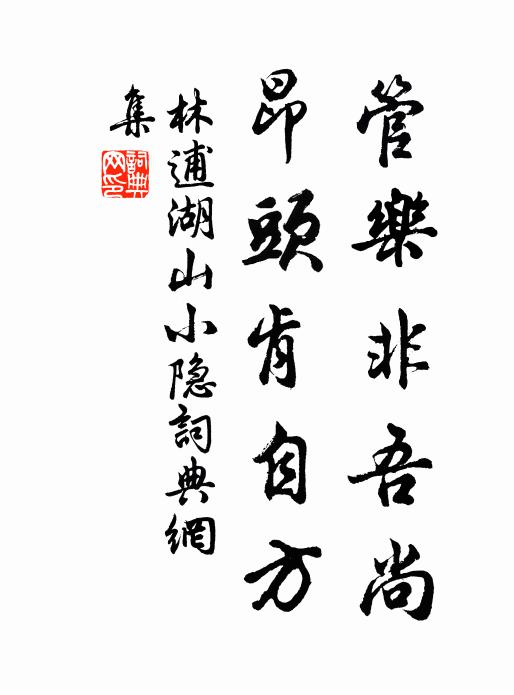 管樂非吾尚
昂頭肯自方
林逋湖山小隐詞典網
集
詞典
网印